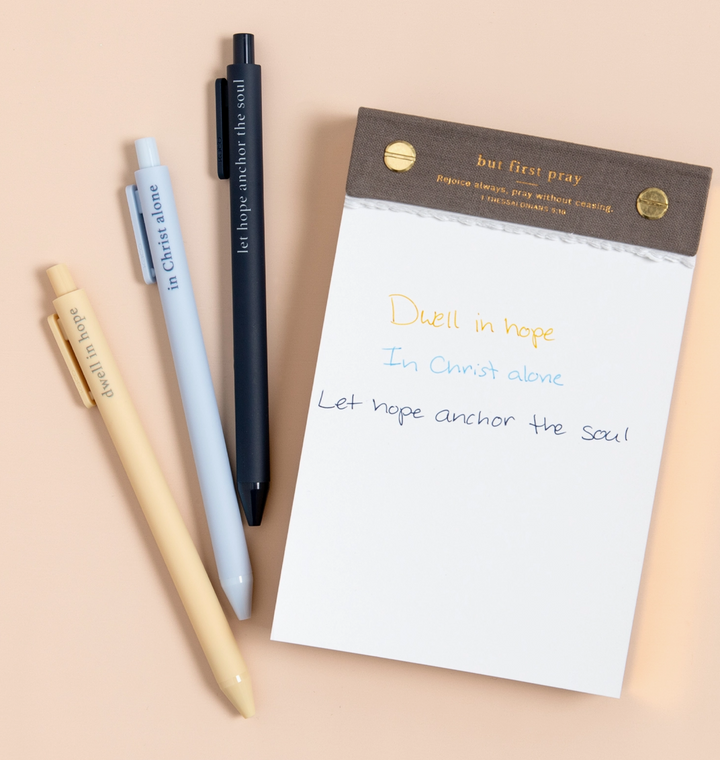 dwell in hope
in Christ alone
let hope anchor the soul
but first pray
Rejoice always, pray without ceasing.
1 THESSALONIANS 5:16
Dwell in hope
In Christ alone
Let hope anchor the soul